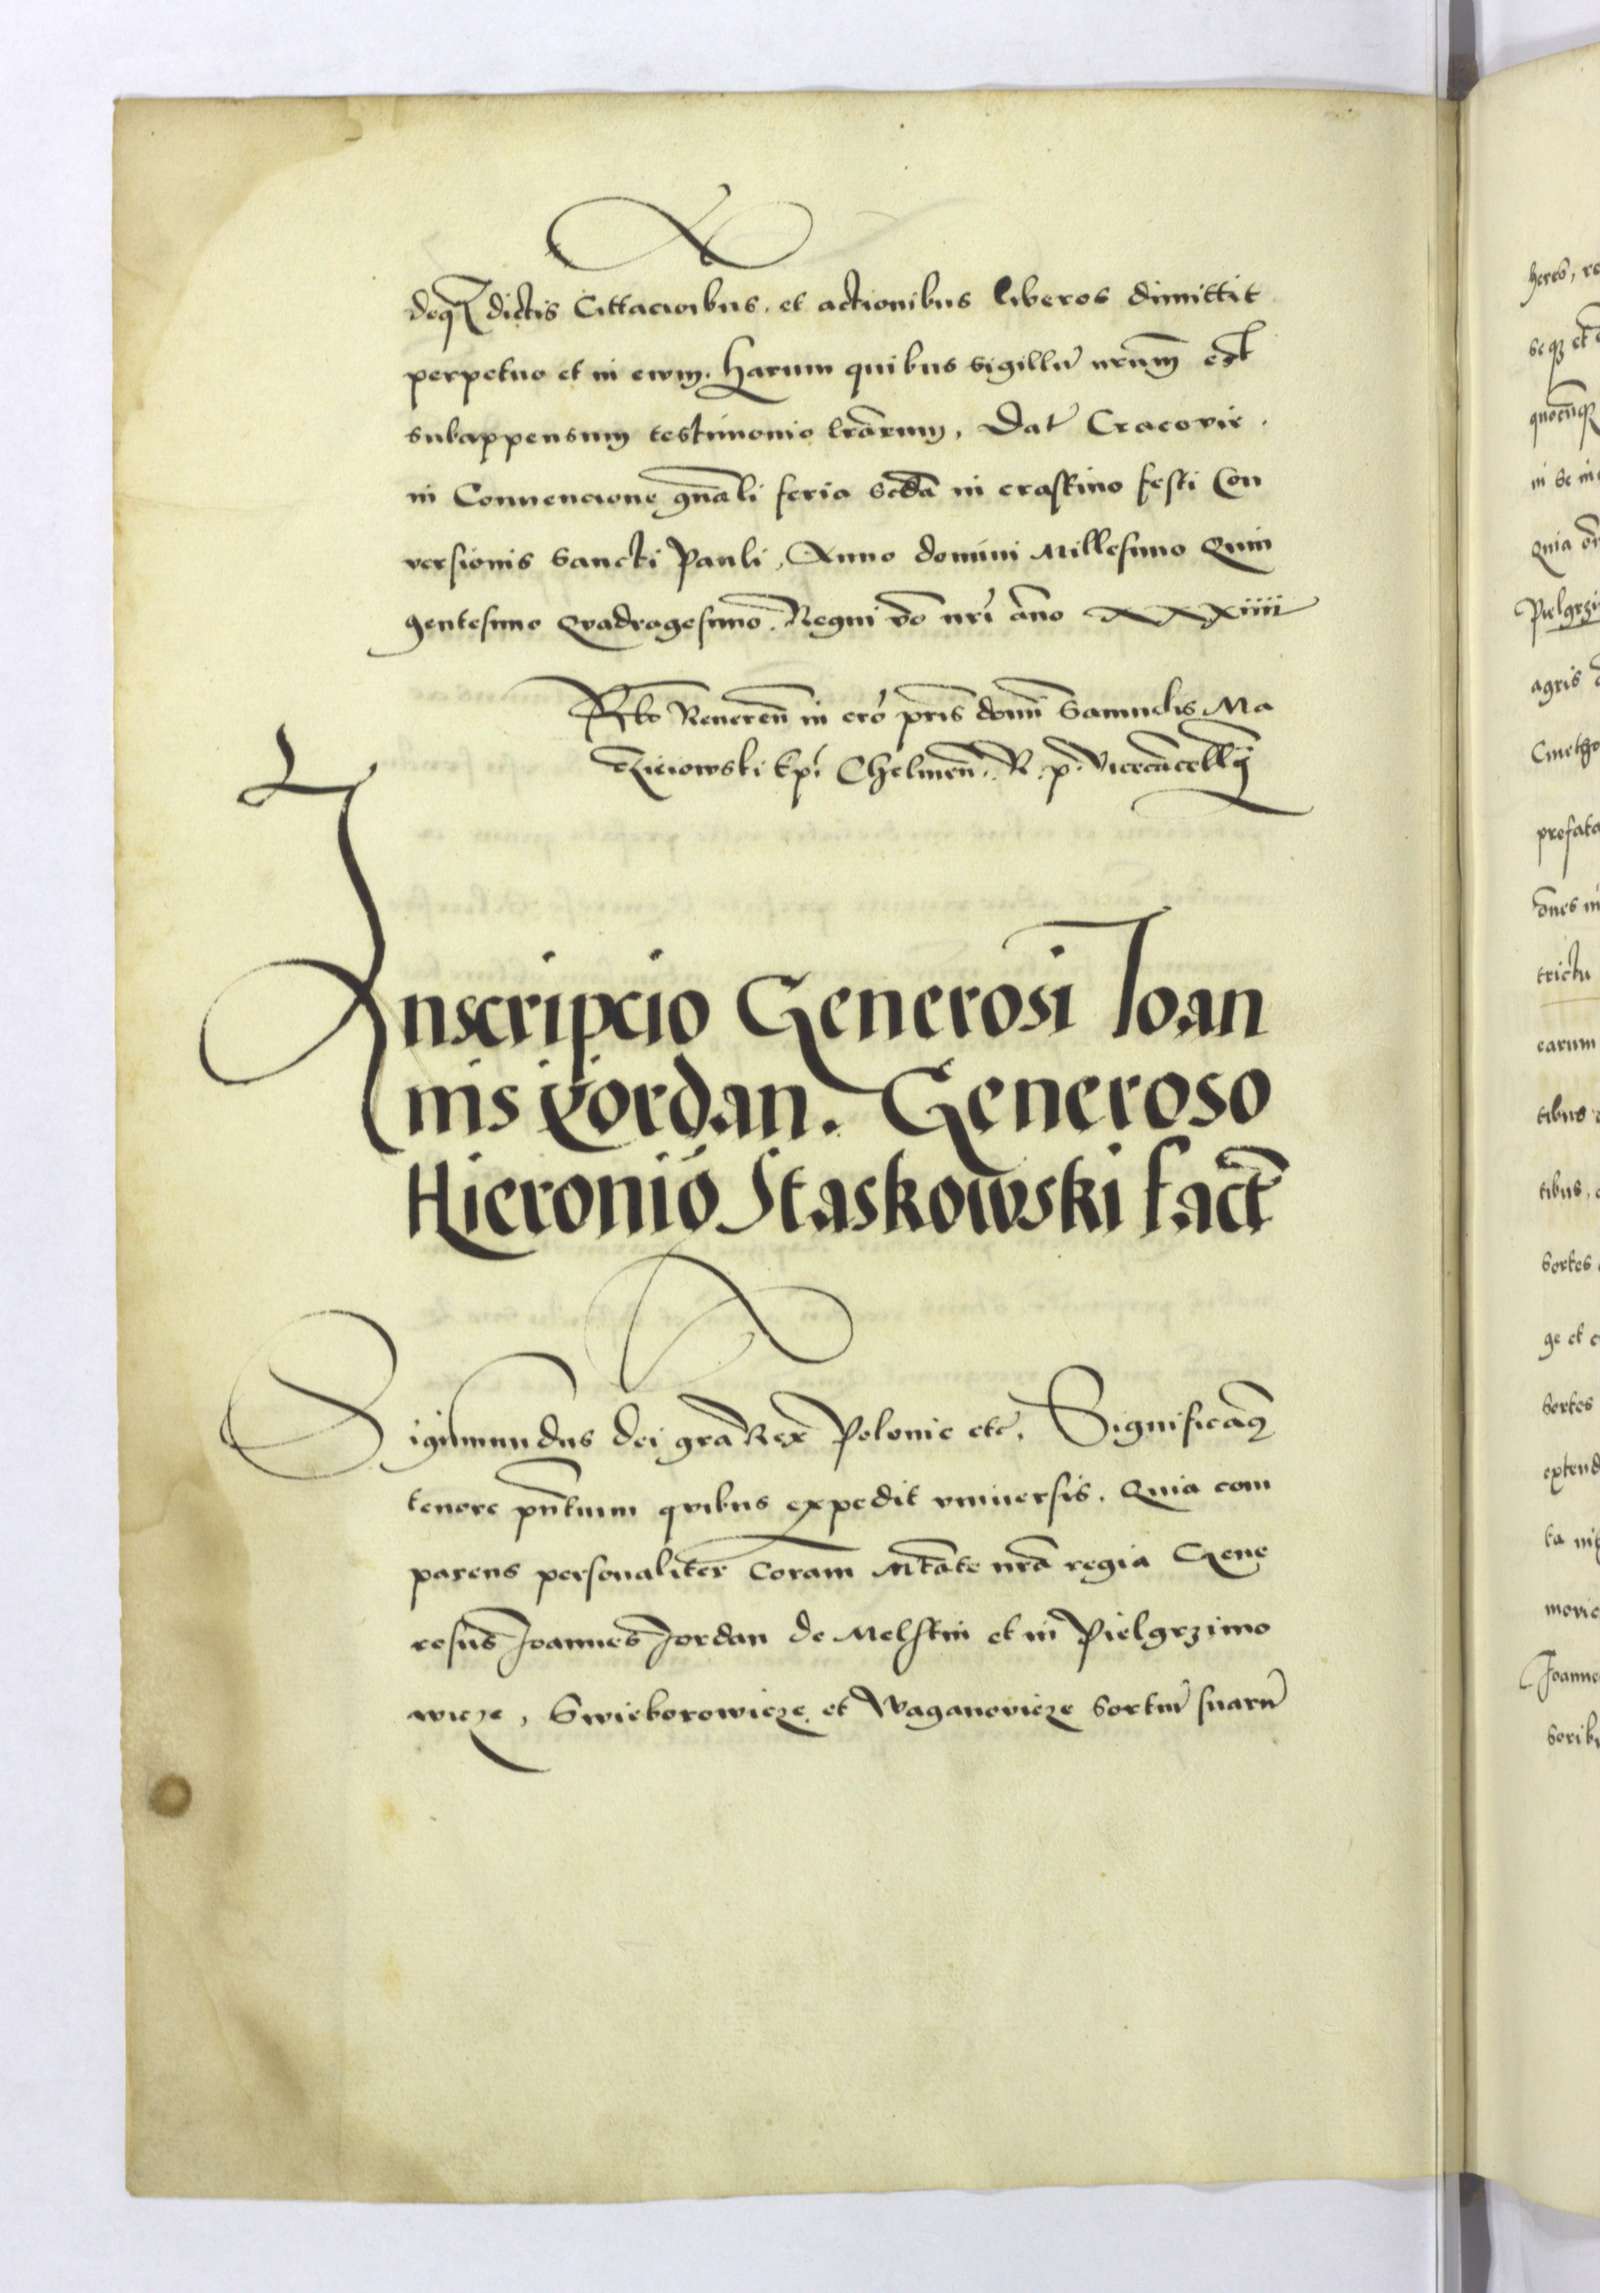 deq̃ dictis Cittacioibus. et actionibus liberos dimittit
perpetuo et in evum. Harum quibus sigillũ nrũm est
subappensum testimonio lrãrum, Dat̃ Cracovie.
in Convencione gñali feria scda in crastino festi Con
versionis Sancti Pauli, Anno domini Millesimo Quin
gentesimo Quadragesimo. Regni vo nri ãno XXXiiii
Rlo Reveren in cro pris domi Samuelis Ma
czieiowski Epi Chelmen. R. p. Vicecãcellÿ
Inscripcio Generosi Ioan
nis yordan. Generoso
Hieronio Staskowski fact̃
Sigismundus dei gra Rex Polonie etc̃. Significam9
tenore pñtium quibus expedit vniversis. Quia com
parens personaliter Coram Mtate nrã regia Gene
rosus Joannes Jordan de Melstin et in Pielgrzimo
wicze, Swieborowicze et Waganovicze sortiũ suarũ
herẽd,
se q3 et
quocũq3
in se in
Quia
Pielgrzi
agris
Cmetho
prefata
õnes in
trictu
earum
tibus
tibus,
sortes
ge et
sortes
extend
ta
Joanne